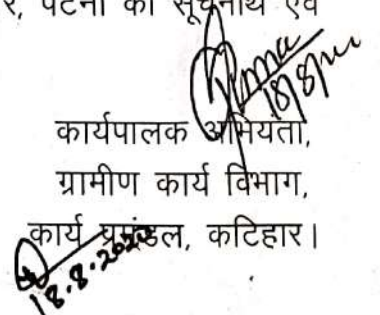 र, पटना को सूचनार्थ एवं
18/8/
कार्यपालक अभियंता,
ग्रामीण कार्य विभाग,
कार्य प्रमंडल, कटिहार।
18.8.2020